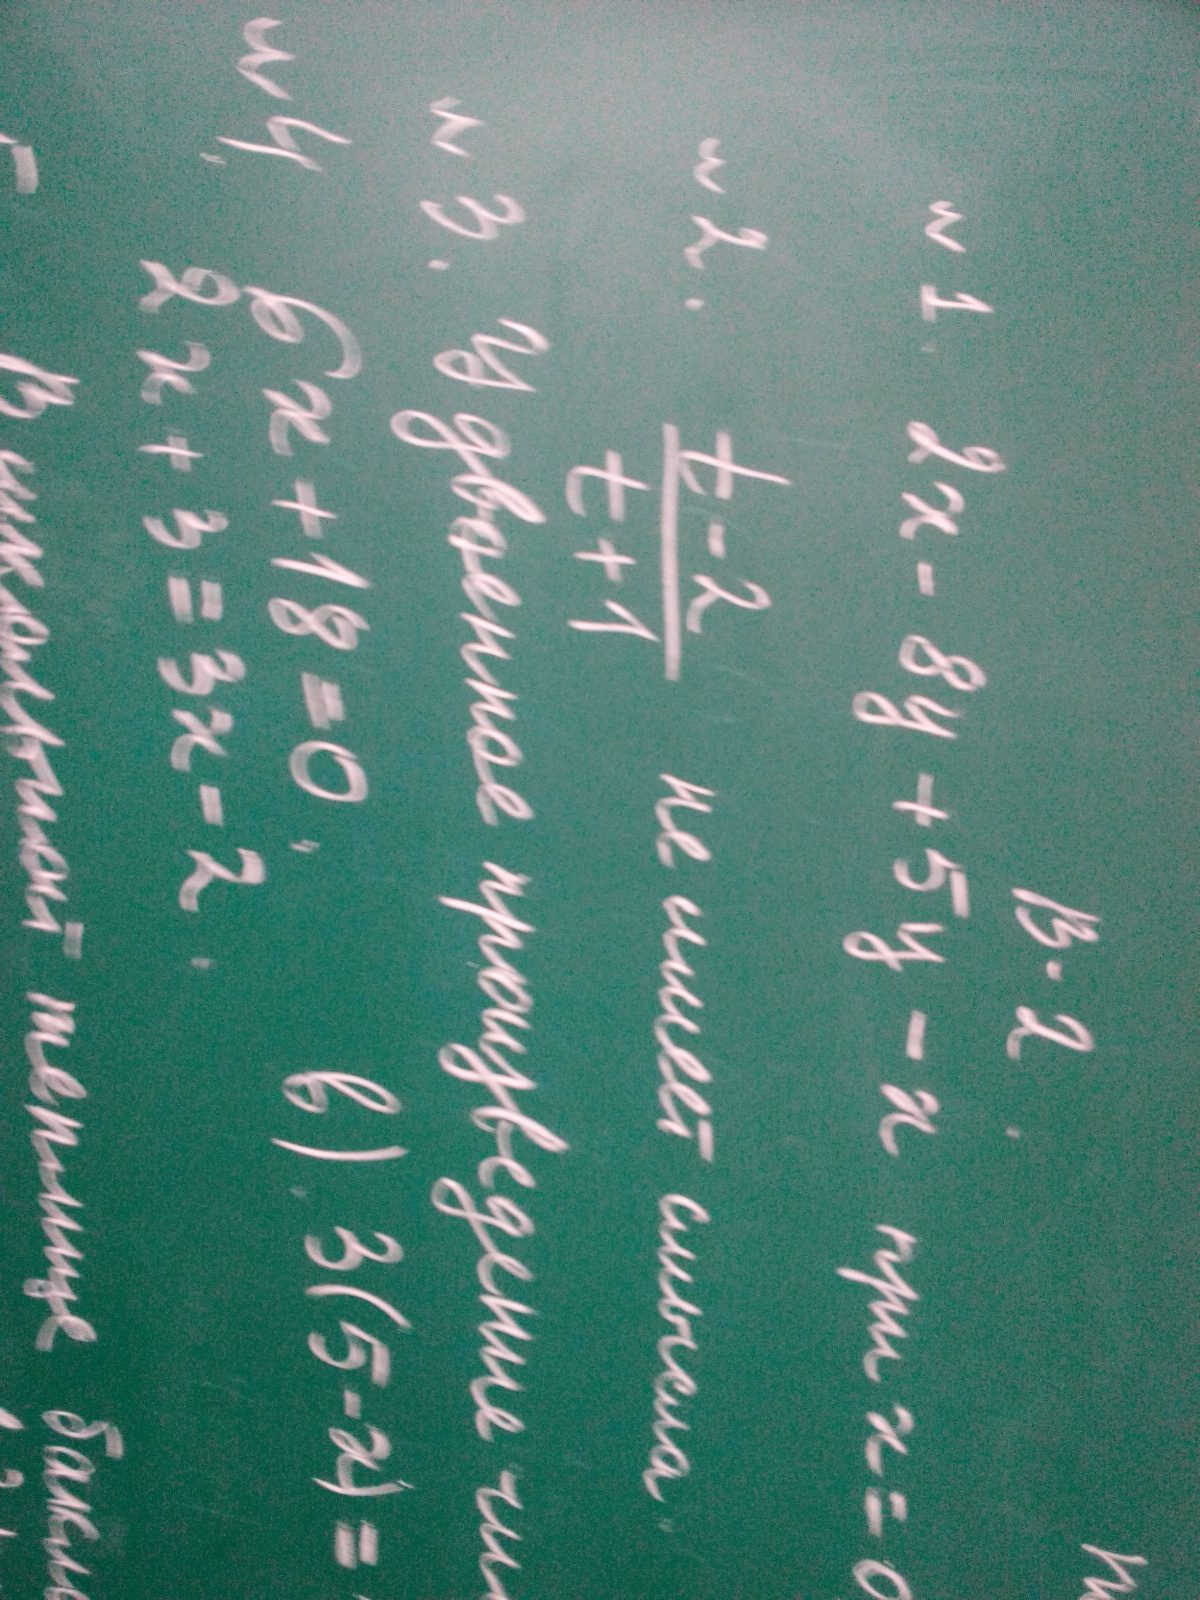 В-2.
№1. 2x - 8y + 5y - x при x = 0
№2. t-2
t+1 не имеет смысла.
№3. Удвоенное произведение чи
№4. 6x + 18 = 0; в). 3(5-x) =
2x + 3 = 3x - 2.
В шестой теплице